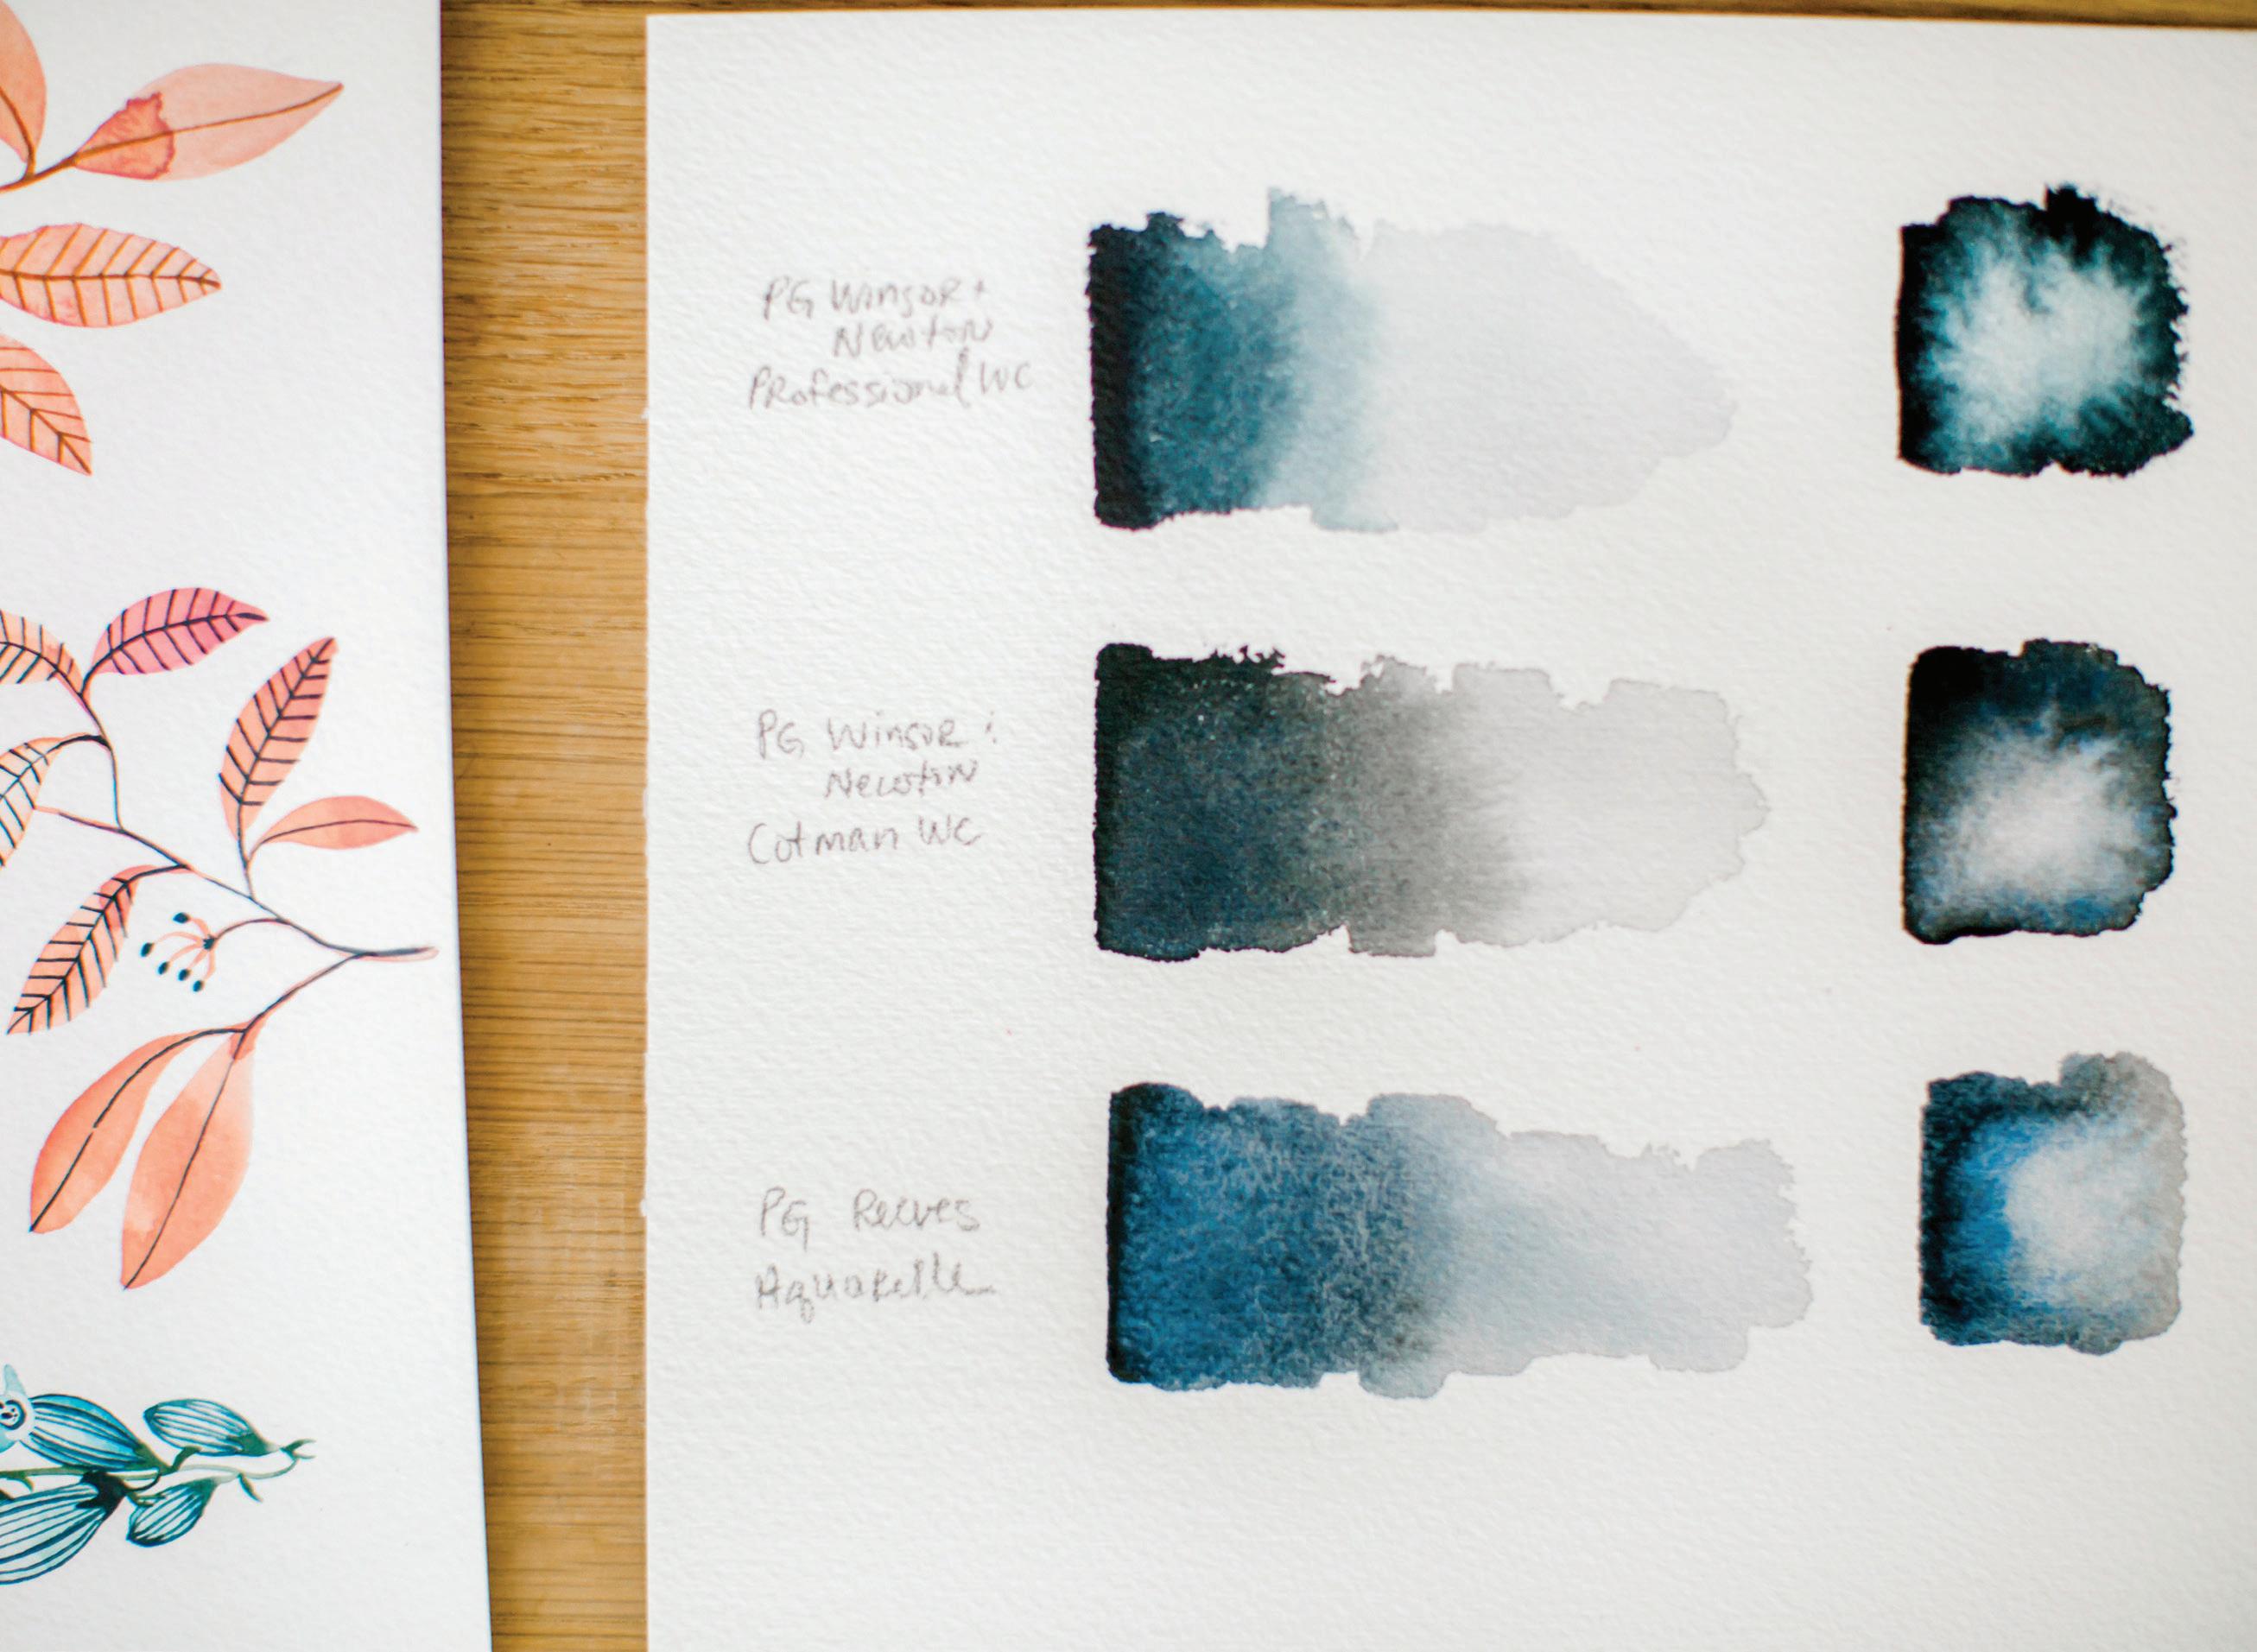 PG Winsor +
Newton
Professional WC
PG Winsor :
Newton
Cotman WC
PG Reeves
Aquarelle